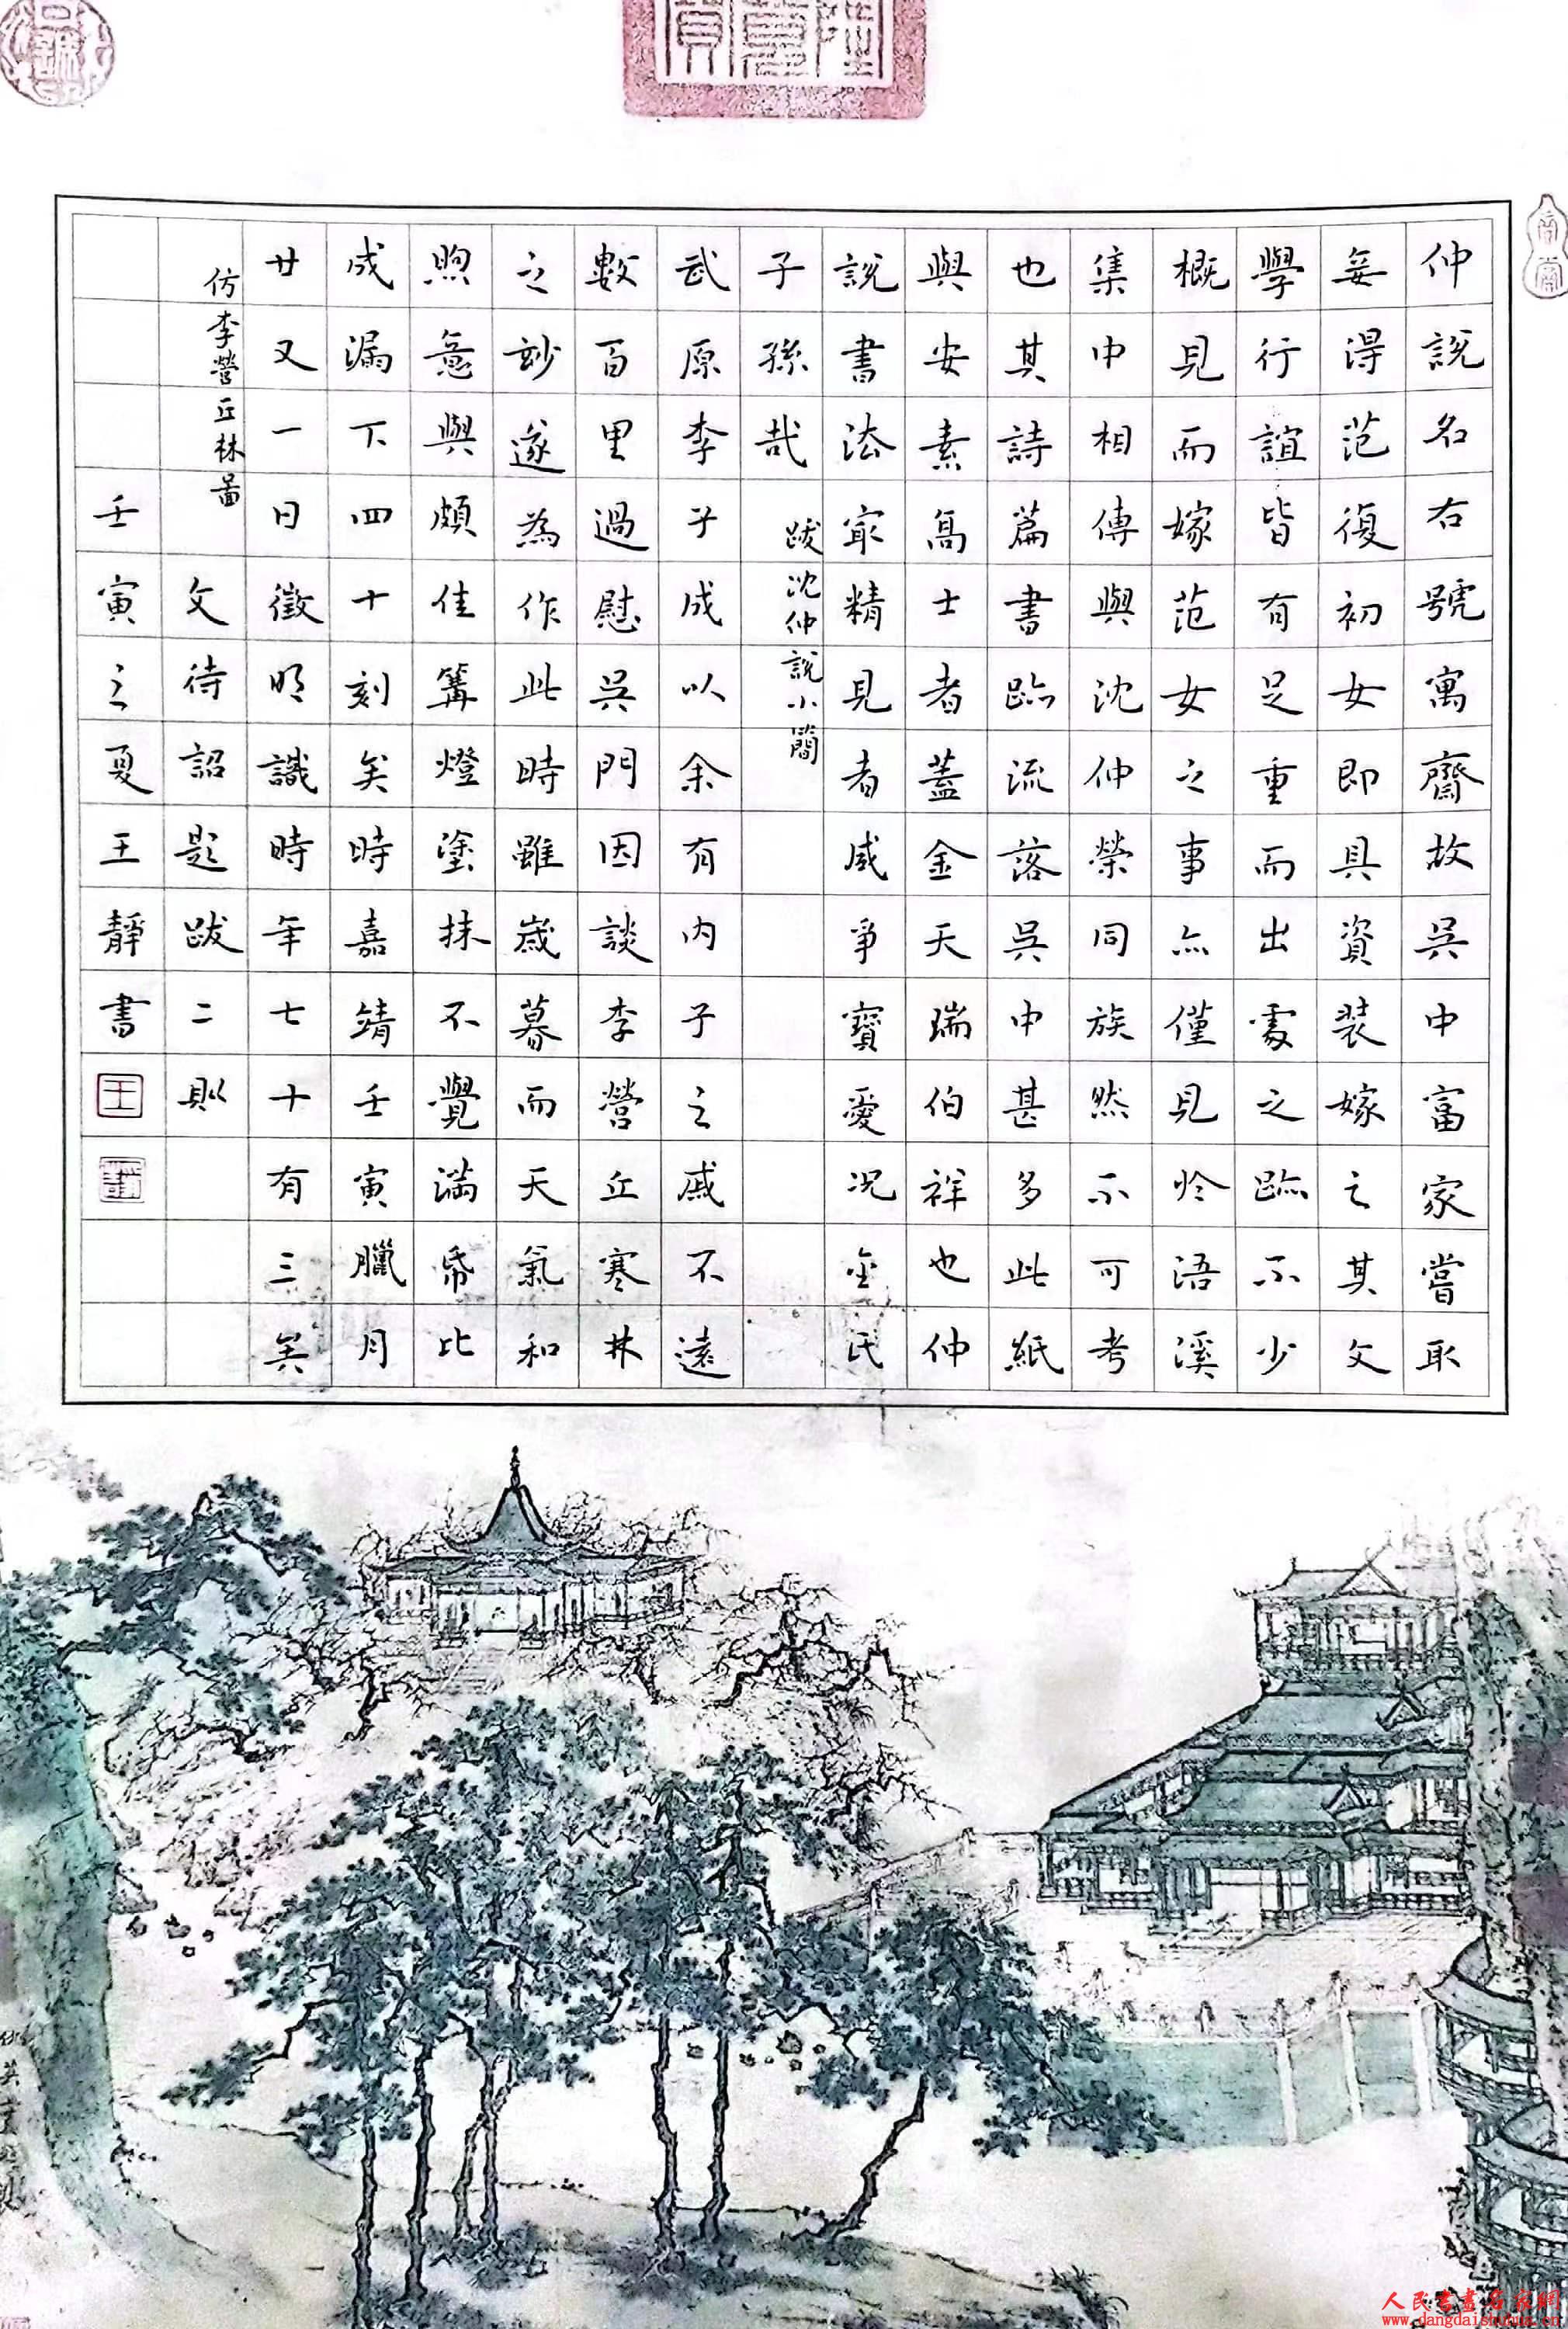 仲說名右號寓齋故吳中富家嘗取
妾得范復初女即具資裝嫁之其文
學行誼皆有足重而出處之跡不少
概見而嫁范女之事亦僅見於浯溪
集中相傳與沈仲榮同族然不可考
也其詩篇書跡流落吳中甚多此紙
與安素高士者蓋金天瑞伯祥也仲
說書法最精見者咸爭寶愛況金氏
子孫哉
跋沈仲說小簡
武原李子成以余有內子之戚不遠
數百里過慰吳門因談李營丘寒林
之妙遂為作此時雖歲暮而天氣和
煦意興頗佳篝燈塗抹不覺滿帋比
成漏下四十刻矣時嘉靖壬寅臘月
廿又一日徵明識時年七十有三矣
仿李營丘林啚
文待詔題跋二則
壬寅之夏王靜書
王
人民書畫名家網
www.dangdaishuhua.cn